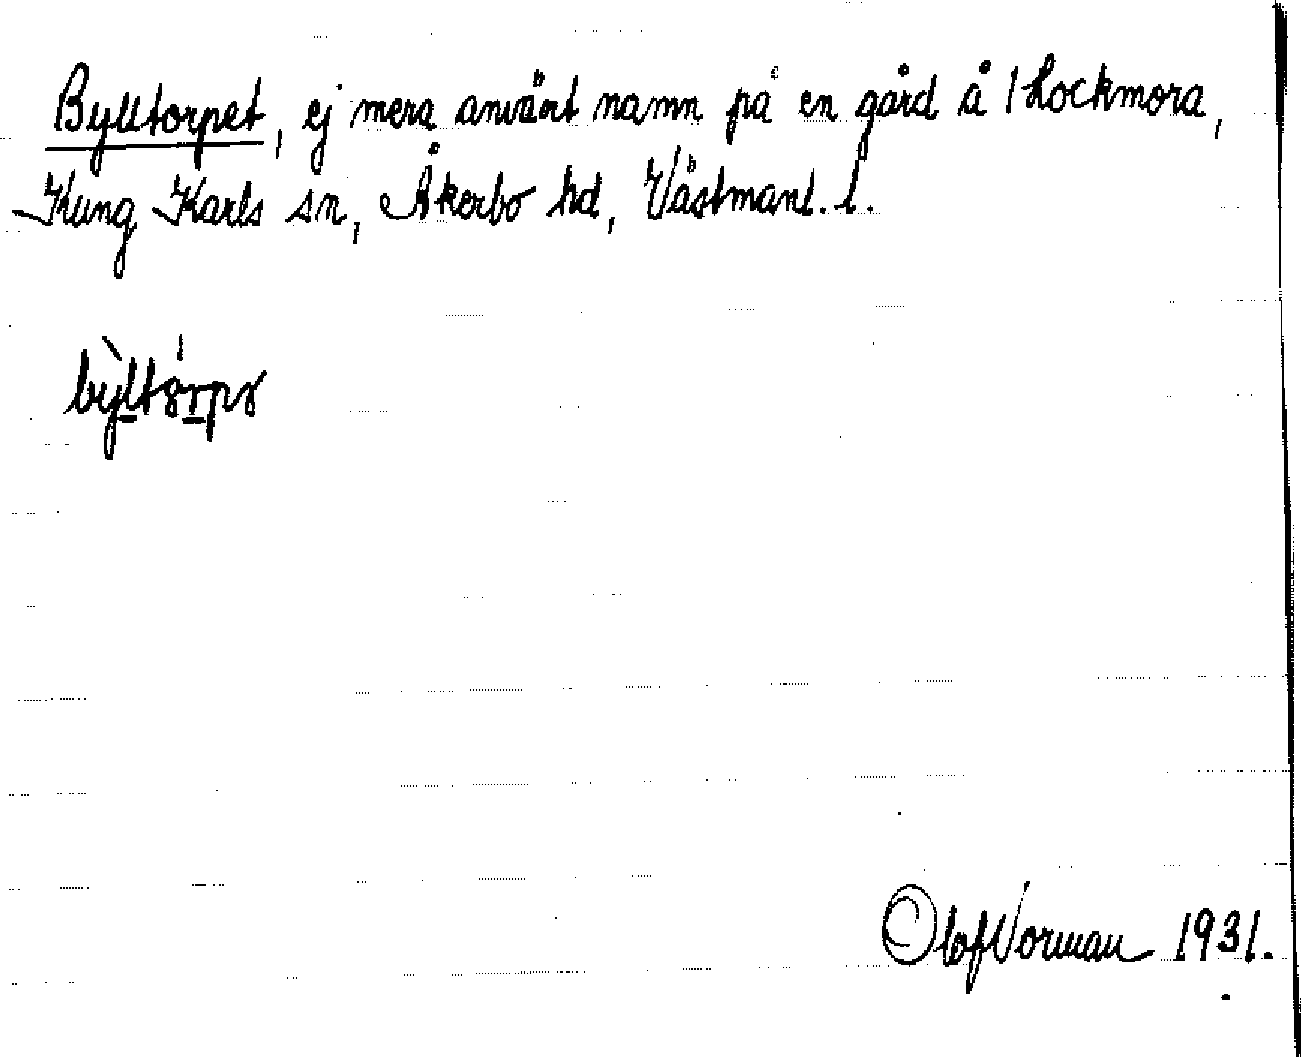 Bylltorpet, ej mera använt namn på en gård å 1 Lockmora,
Kung Karls sn, Åkerbo hd, Västmanl. l.
Olof Norman 1931.